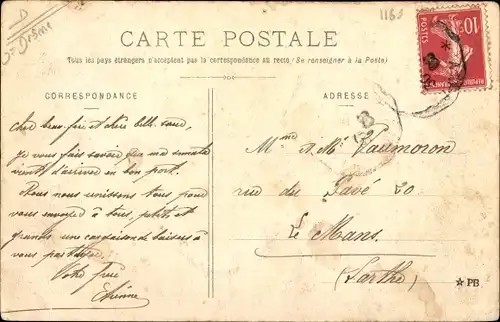 D
Drôme
1163
CARTE POSTALE
Tous les pays étrangers n'acceptent pas la correspondance au recto (Se renseigner à la Poste)
CORRESPONDANCE
ADRESSE
10c
POSTES
Cher beau-frère et chère belle sœur,
Je vous fais savoir que ma
vient d'arriver en bon port.
Nous nous unissons tous pour
vous envoyer à tous, petits et
grands une de baisers à
vous
Votre frère
Etienne
Mme & Mr Vaumoron
rue du Pavé 20
Le Mans
(Sarthe)
PB